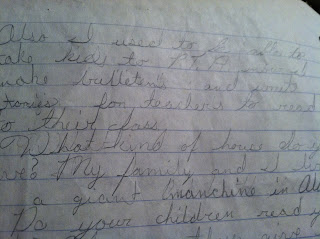 Also I used to
take kids to P.E. and
make bulletens and write
tories for teachers to read
to their class.
What kind of house do y
ve? My family and I li
a giant manchine in
Do your children read y